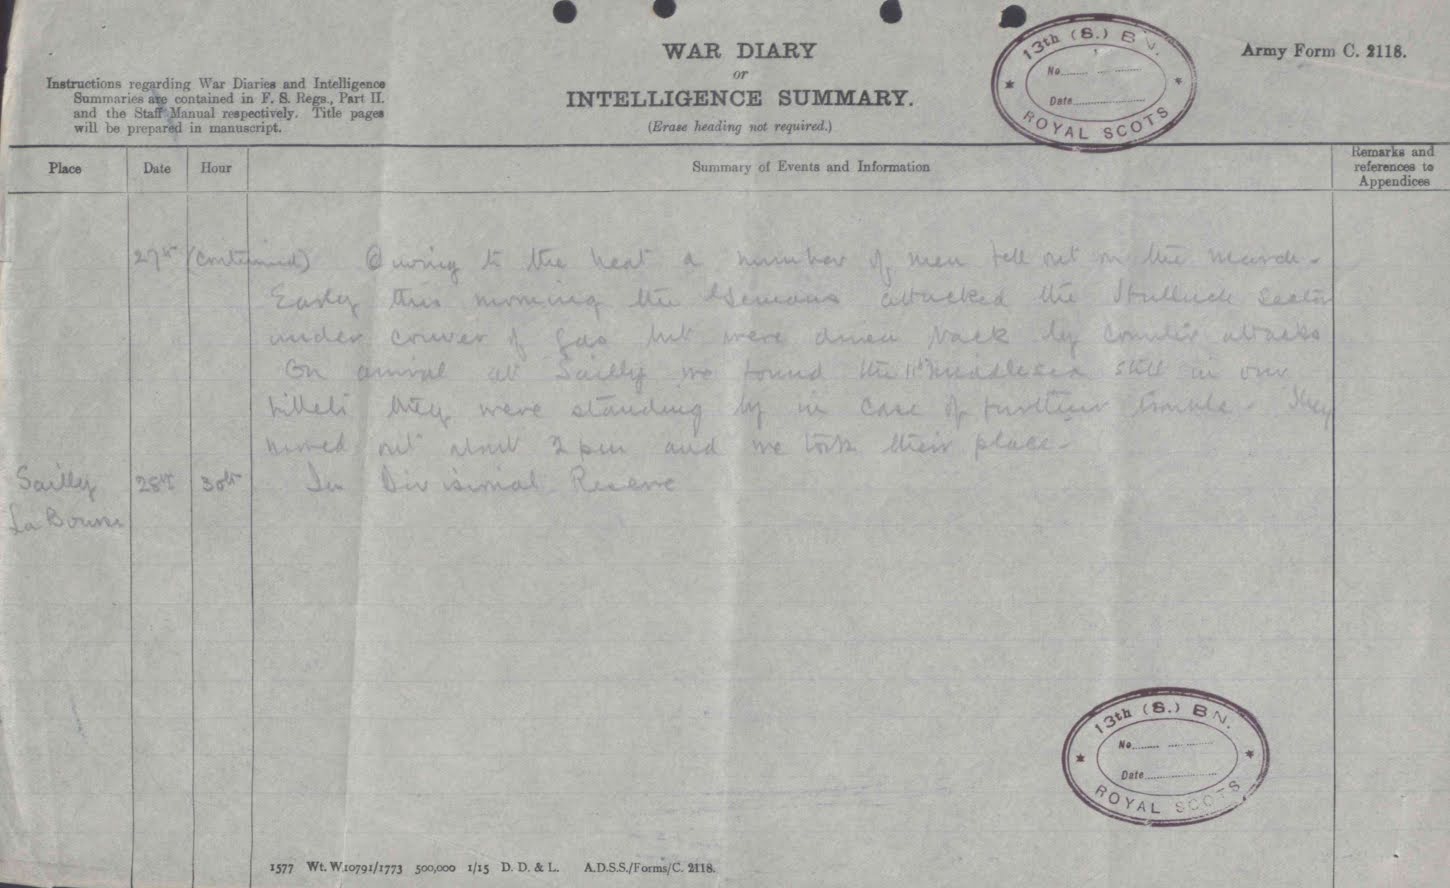 WAR DIARY
or
INTELLIGENCE SUMMARY.
(Erase heading not required.)
Army Form C. 2118.
Instructions regarding War Diaries and Intelligence
Summaries are contained in F. S. Regs., Part II.
and the Staff Manual respectively. Title pages
will be prepared in manuscript.
13th (S.) BN.
No.
Date
ROYAL SCOTS
Place Date Hour Summary of Events and Information Remarks and references to Appendices
27th (continued) Owing to the heat a number of men fell out on the march.
Early this morning the Germans attacked the Hulluch Sector
under cover of gas but were driven back by counter attacks
On arrival at Sailly we found the 11th Middlesex still in our
billets they were standing by in case of further trouble. They
moved out about 2 pm and we took their place.
Sailly 28th 30th In Divisional Reserve
La Bourse
13th (S.) BN.
No.
Date
ROYAL SCOTS
1577 Wt. W10791/1773 500,000 1/15 D. D. & L. A.D.S.S./Forms/C. 2118.